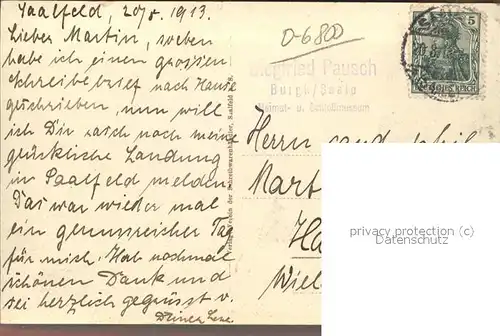 Saalfeld, 20/8. 1913.
Lieber Martin, soeben
habe ich einen grossen
Schreibebrief nach Hause
geschrieben, nun will
ich Dir rasch noch meine
glückliche Landung
in Saalfeld melden.
Das war wieder mal
ein genussreicher Tag
für mich. Hab nochmal
schönen Dank und
sei herzlich gegrüsst v.
Deiner
D-6800
Siegfried Pausch
Burgk/Saale
Heimat- u.
5
DEUTSCHES REICH
Herrn cand. phil.
Mart
Ha
Wiel
privacy protection (c)
Datenschutz